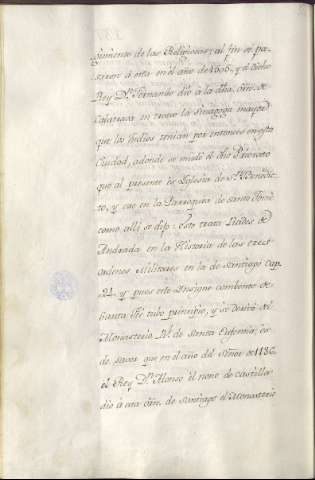 gimiento de las Religiosas; al fin se pa-
saron á esta en el año de 1505, y el dicho
Rey Dn. Fernando dio á la dha. orn. de
Calatrava en trueco la Sinagoga mayor
que los Judios tenian por entonces en esta
Ciudad, adonde se mudó el dho Priorato
que al presente es Iglesia de Sn. Benedic-
to, y cae en la Parroquia de Santo Tomé
como alli se dijo: esto trata Rades de
Andrada en la Historia de las tres
ordenes Militares en la de Santiago Cap.
21. y pues este Insigne combento de
Santa Fee tubo principio, y se derivó del
Monasterio Rl. de Santa Eufemia, es
de saver que en el año del Señor de 1186
el Rey Dn. Alonso el nono de Castilla
dio á esta orn. de Santiago el Monasterio